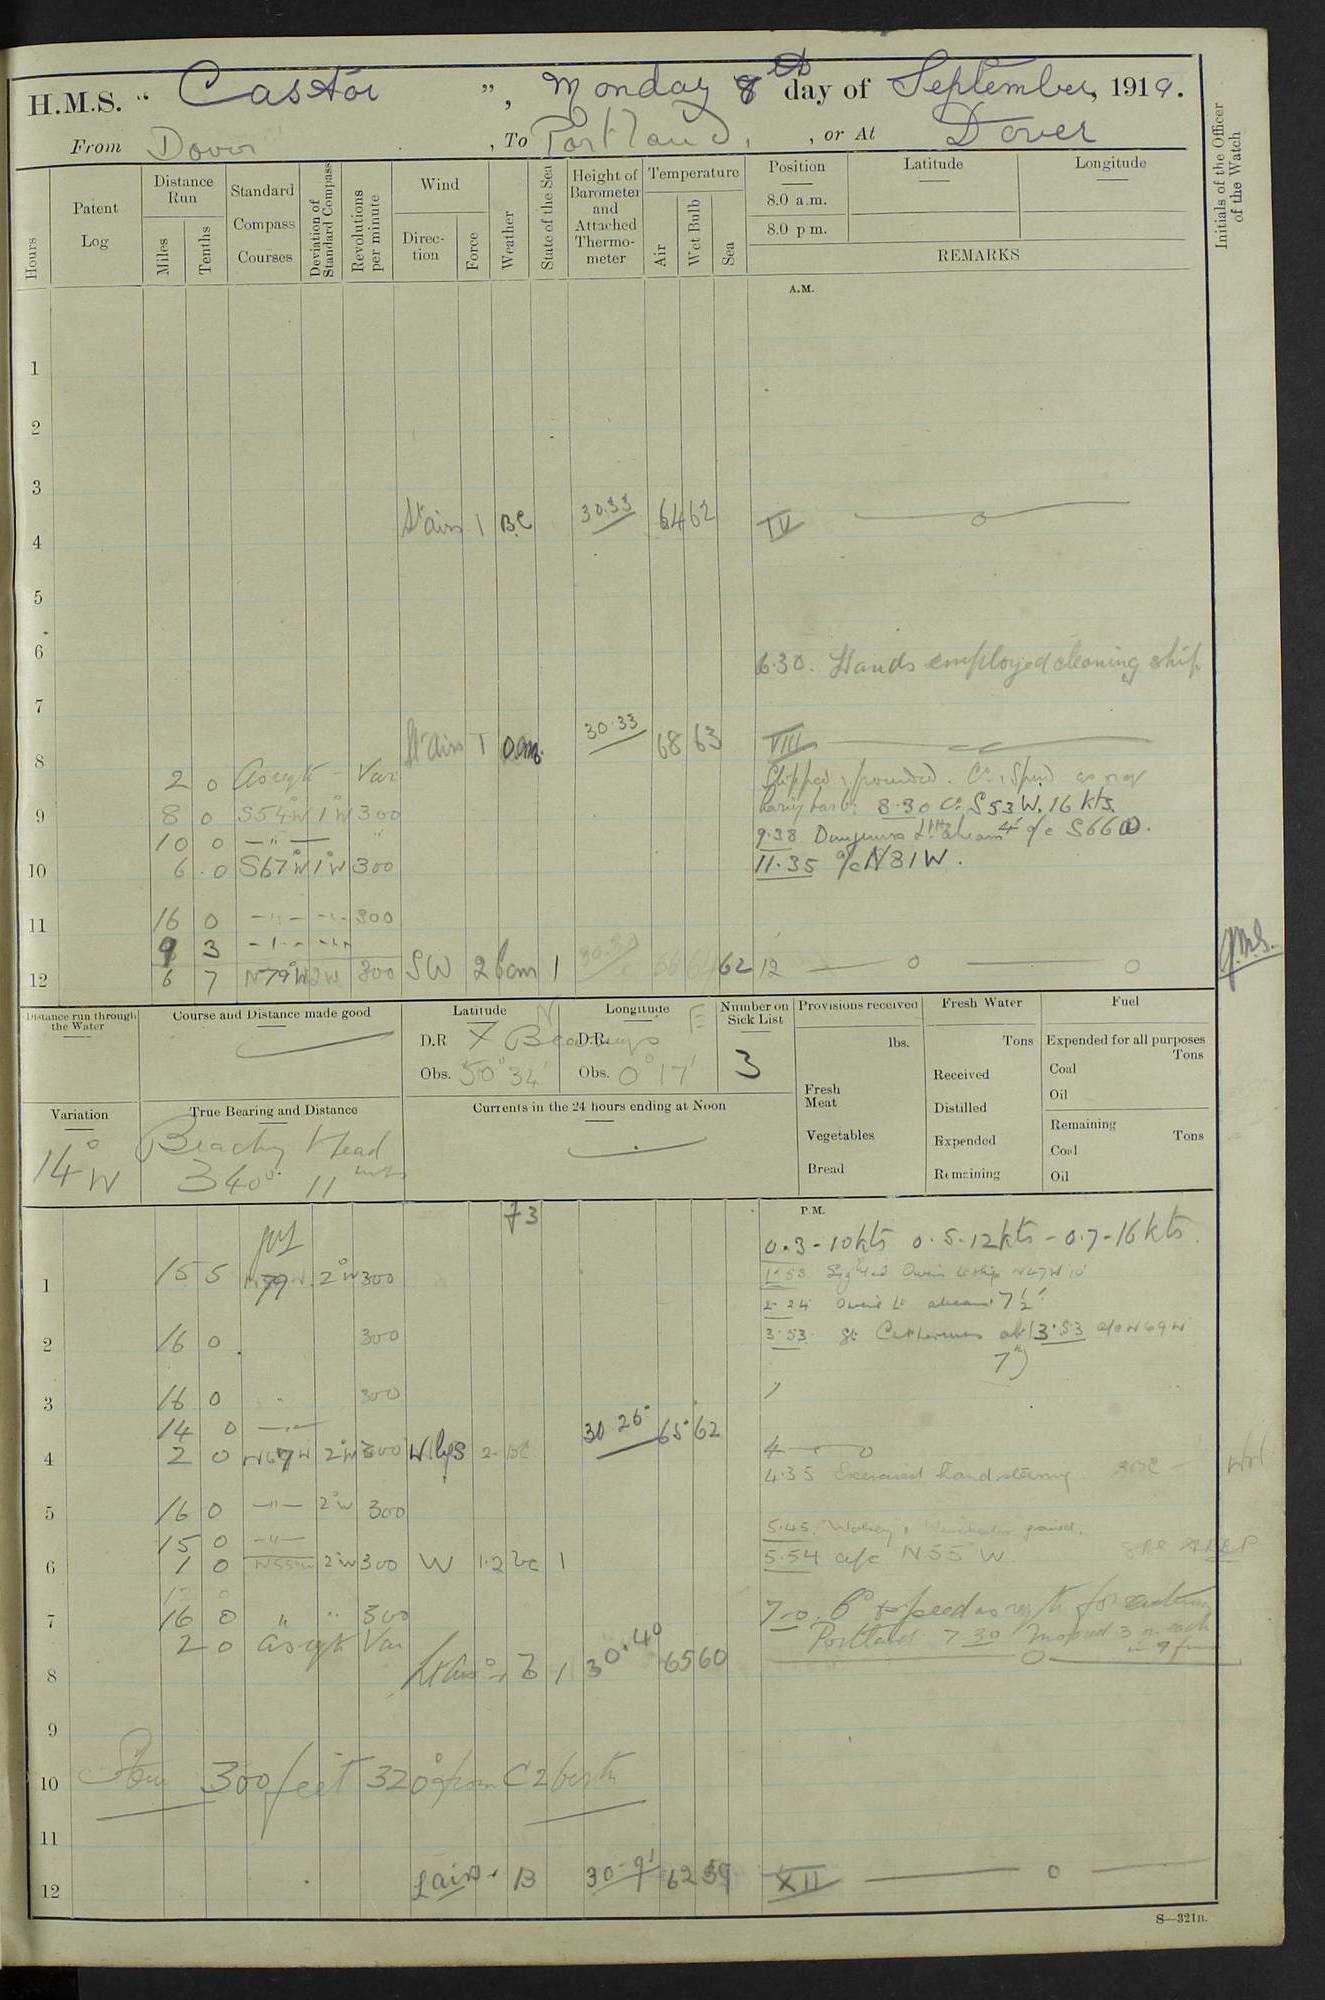 H.M.S. "Castor", Monday 8th day of September, 1919.
From Dover, To Portland, or At Dover
Hours
Patent Log
Distance Run
Miles
Tenths
Standard Compass Courses
Deviation of Standard Compass
Revolutions per minute
Wind
Direction
Force
Weather
State of the Sea
Height of Barometer and Attached Thermometer
Temperature
Air
Wet Bulb
Sea
Position
8.0 a.m.
8.0 p.m.
Latitude
Longitude
REMARKS
Initials of the Officer of the Watch
A.M.
1
2
3
4 Lt airs 1 BC 30.33 64 62 IV
5
6
6.30. Hands employed cleaning ship
7
8 Lt airs 1 30.33 68 63 VIII
2 0 As reqte Var Slipped & proceeded. Co. & Speed as req
9 8 0 S54°W 1°W 300 8.30 Co. S53W. 16 kts.
10 0 — " — " 9.38 a/c S66W.
10 6 0 S67°W 1°W 300 11.35 a/c N81W.
11 16 0 — " — — " — 300
9 3 — " — — " —
12 6 7 N79°W 2W 300 SW 2 bcm 1 62 12 J.M.S.
Distance run through the Water
Course and Distance made good
Latitude N
D.R. X Bearings
Obs. 50° 34'
Longitude E
D.R.
Obs. 0° 17'
Number on Sick List
3
Provisions received
lbs.
Fresh Meat
Vegetables
Bread
Fresh Water
Tons
Received
Distilled
Expended
Remaining
Fuel
Expended for all purposes
Tons
Coal
Oil
Remaining
Tons
Coal
Oil
Variation
14° W
True Bearing and Distance
Beachy Head
340° 11 miles
Currents in the 24 hours ending at Noon
73
P.M.
0.3 - 10kts 0.5 - 12kts - 0.7 - 16kts.
1 15 5 2°W 300 1.53 Sighted Owers Lt ship N47W 10'
2.24 Owers Lt abeam 7½'
2 16 0 300 3.53 St Catherines ab 3.53 a/c N69W
7')
3 16 0 300
14 0 — " — 30.26 65 62
4 2 0 N67W 2°W 300 W'lys 2 BC 4
4.35 Exercised hand steering
5 16 0 — " — 2°W 300
15 0 — " — 5.45. "Wolsey" & Winchester joined.
6 1 0 N55°W 2°W 300 W 1.2 bc 1 5.54 a/c N55°W
7 16 0 " " 300 7.0. Co & speed as reqte for entering
2 0 As reqte Var Portland. 7.30 Moored 3 on each
in 9 fms
8 Lt airs 0-1 b 1 30.40 65 60
9
10 300 feet 320° from C2 berth
11
12 L airs B 62 59 XII
S—321B.